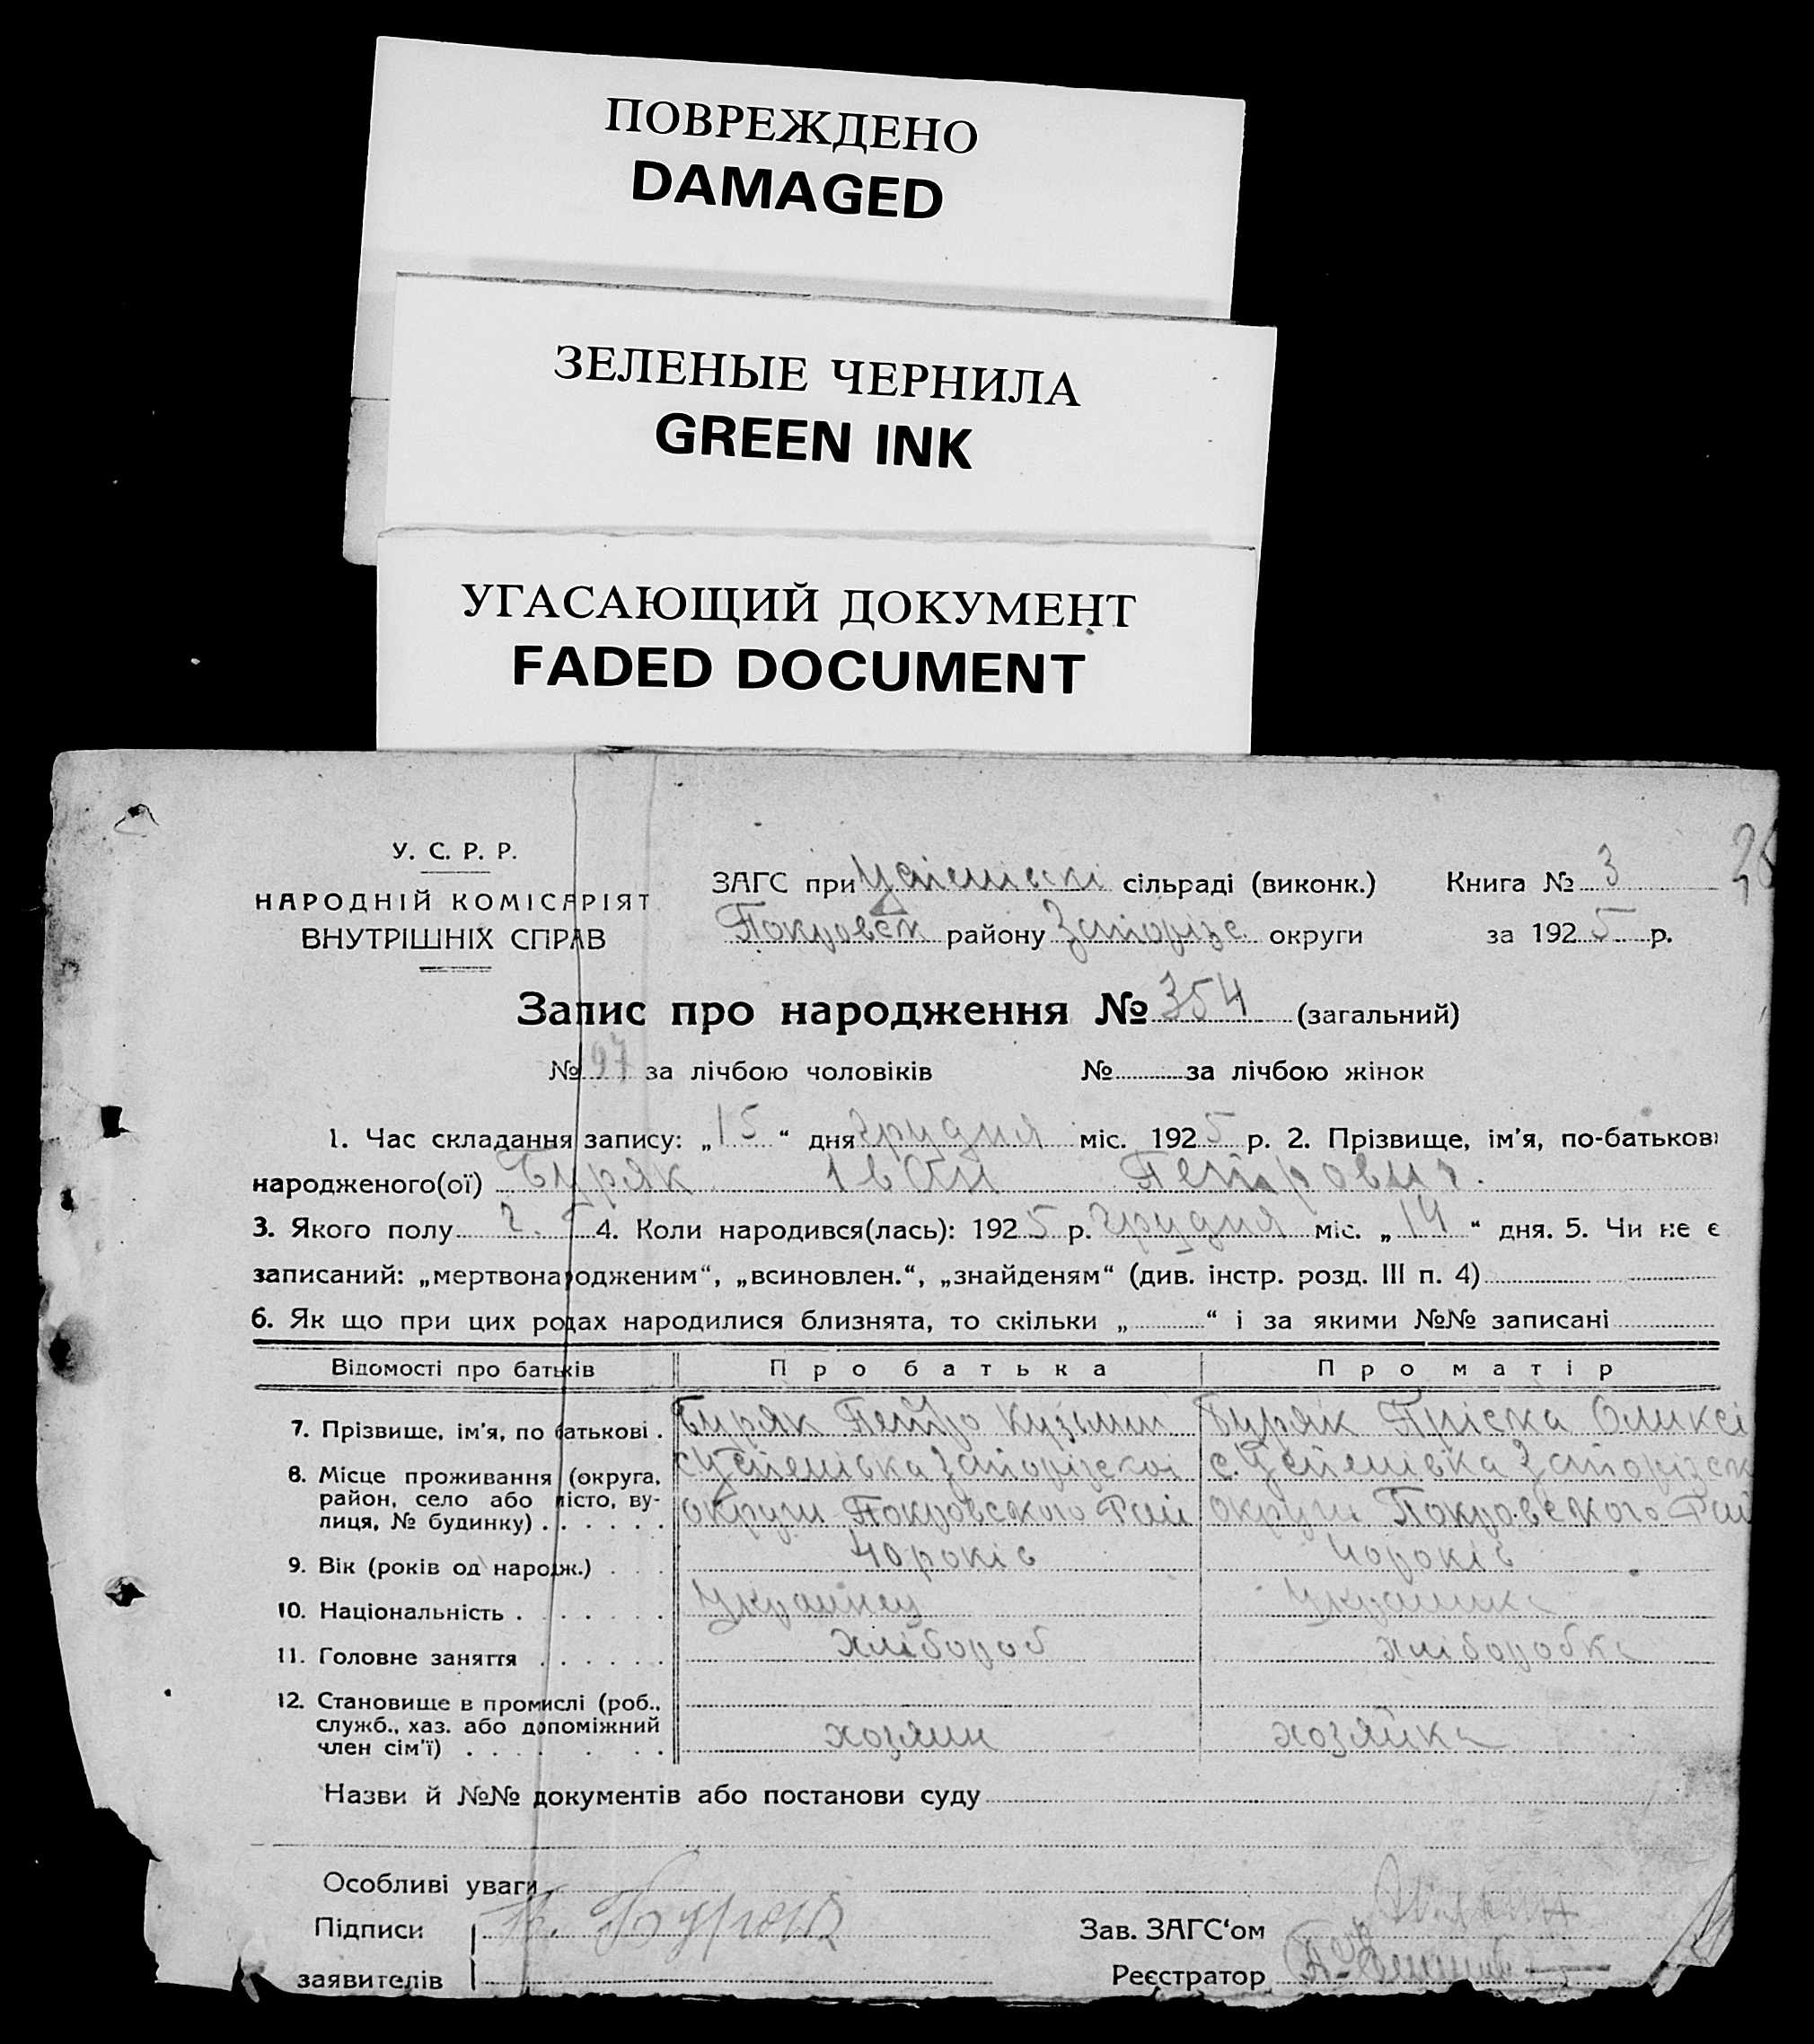 ПОВРЕЖДЕНО
DAMAGED
ЗЕЛЕНЫЕ ЧЕРНИЛА
GREEN INK
УГАСАЮЩИЙ ДОКУМЕНТ
FADED DOCUMENT
У. С. Р. Р.
НАРОДНІЙ КОМІСАРІЯТ
ВНУТРІШНІХ СПРАВ
ЗАГС при сільраді (виконк.) Книга № 3
Покровск району Запорізс округи за 1925 р.
Запис про народження № 354 (загальний)
№ 97 за лічбою чоловіків № за лічбою жінок
1. Час складання запису: „15“ дня грудня міс. 1925 р. 2. Прізвище, ім'я, по-батькові
народженого(ої) Буряк Іван Петрович.
3. Якого полу ч. 4. Коли народився(лась): 1925 р. грудня міс. „14“ дня. 5. Чи не є
записаний: „мертвонародженим“, „всиновлен.“, „знайденям“ (див. інстр. розд. III п. 4)
6. Як що при цих родах народилися близнята, то скільки „ “ і за якими №№ записані
Відомості про батьків Про батька Про матір
7. Прізвище, ім'я, по батькові . Буряк Петро Кузьмич Буряк Пріська Оликсі
8. Місце проживання (округа, с Успенівка Запорізскоі с. Успенівка Запорізск
район, село або місто, ву-
лиця, № будинку) . . . . . . округи Покровского Рай округи Покровского Рай
9. Вік (років од народж.) . . . 40 років 40 років
10. Національність . . . . . . . Украинец Украинка
11. Головне заняття . . . . . . хлібороб хлібороbка
12. Становище в промислі (роб.,
служб., хаз. або допоміжний
член сім'ї) . . . . . . . хозяин хозяйка
Назви й №№ документів або постанови суду
Особливі уваги
Підписи Зав. ЗАГС'ом
заявителів Реєстратор